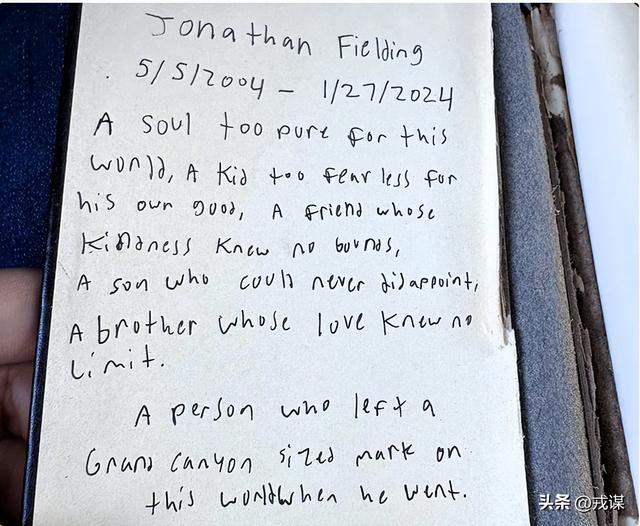 Jonathan Fielding
5/5/2004 – 1/27/2024
A soul too pure for this
world, A Kid too fearless for
his own good, A friend whose
Kindness Knew no bounds,
A son who could never disappoint,
A brother whose love Knew no
Limit.
A person who left a
Grand Canyon sized mark on
this world when he went.
头条 @戎谋